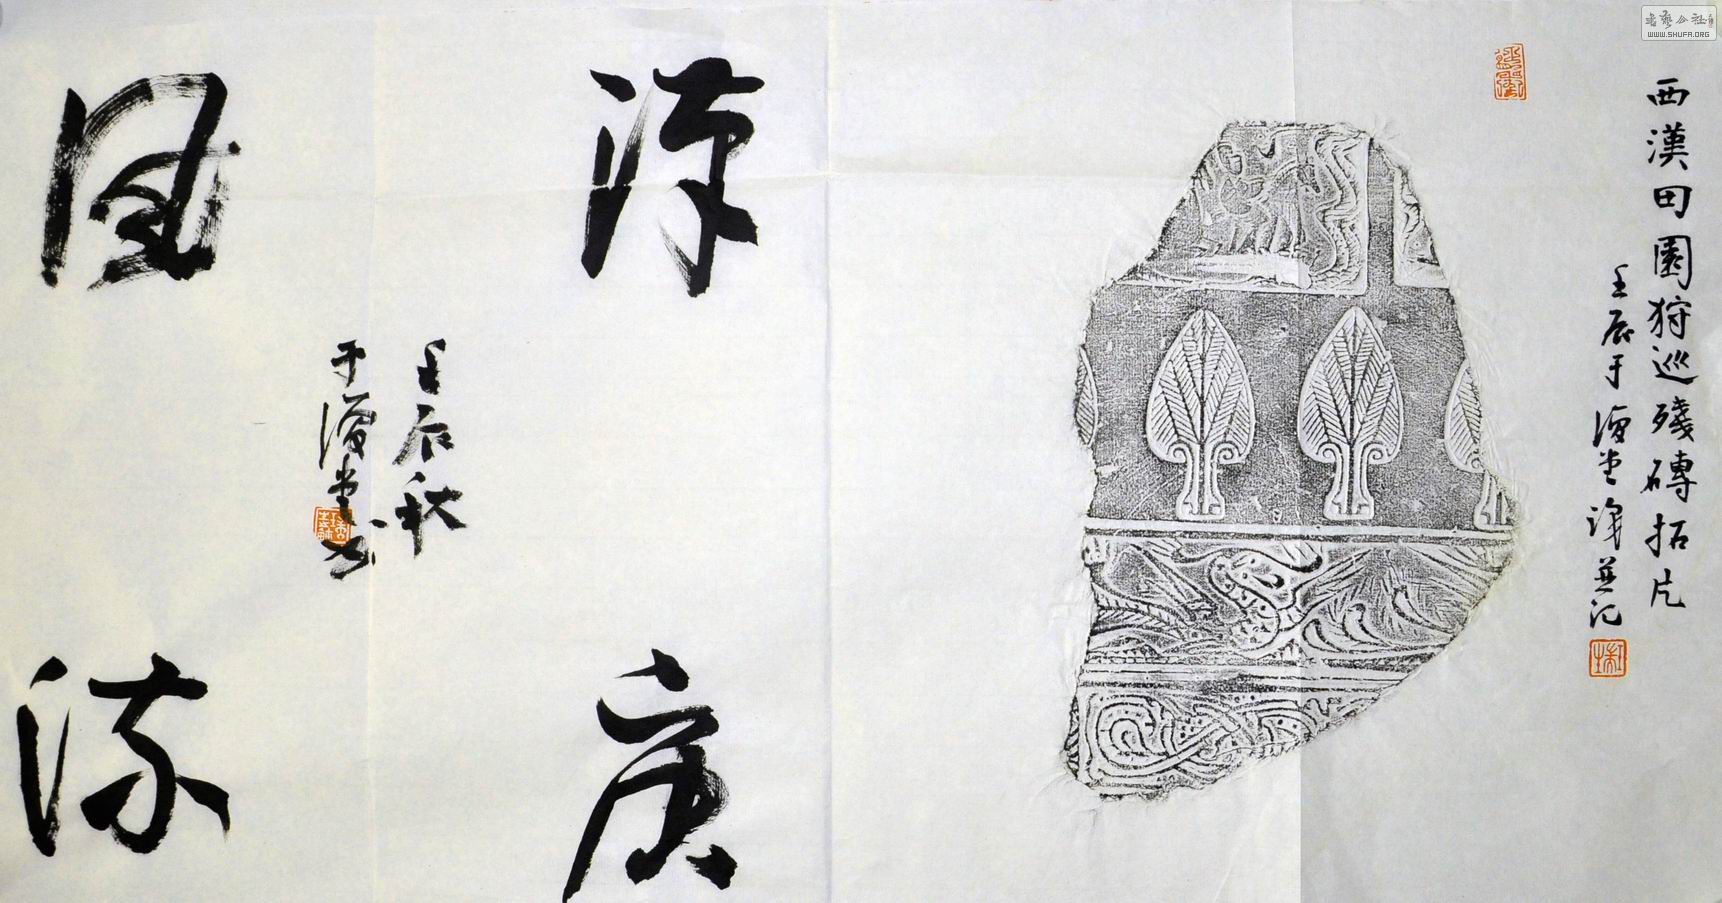 西漢田園狩巡殘磚拓片
壬辰于堂識並記
漢唐
風流
壬辰秋
于堂
書藝公社
WWW.SHUFA.ORG